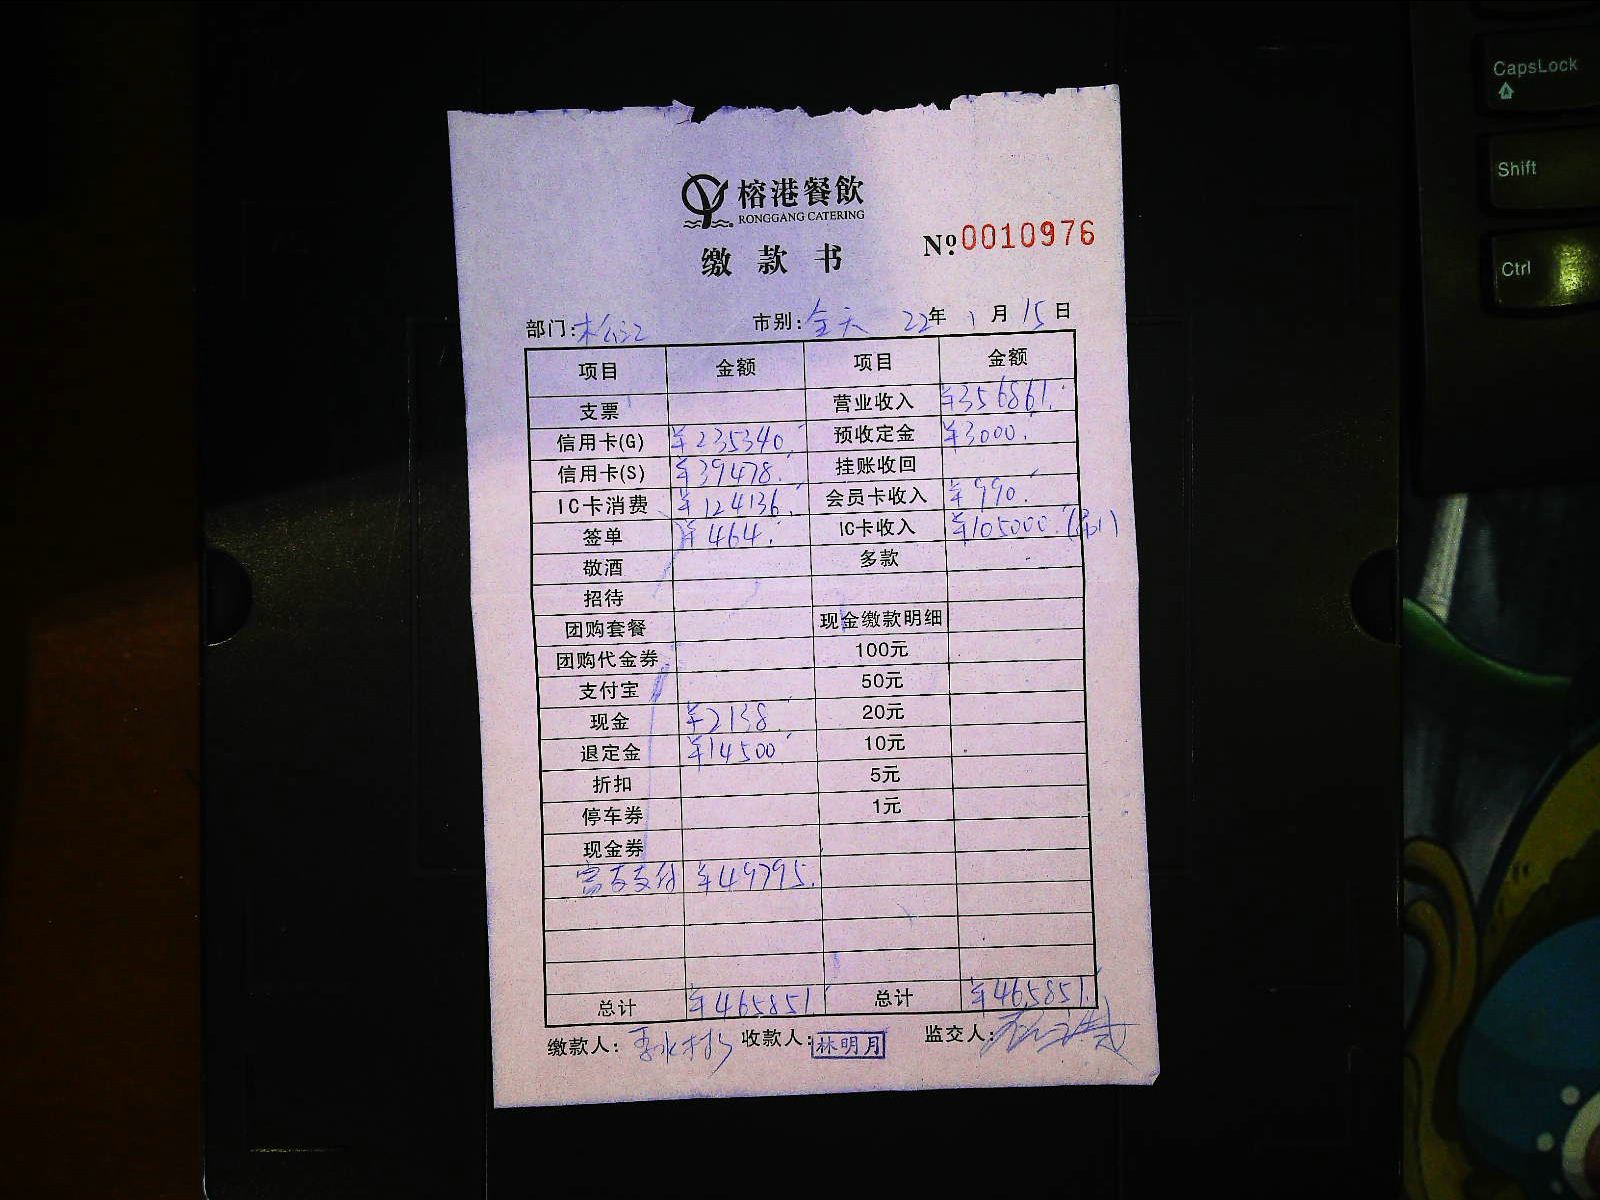 榕港餐飲
RONGGANG CATERING
缴款书
№ 0010976
部门: 松江 市别: 全天 22年 1月 15日
项目 金额 项目 金额
支票 营业收入 ¥356861.
信用卡(G) ¥235340. 预收定金 ¥3000.
信用卡(S) ¥39478. 挂账收回
IC卡消费 ¥124136. 会员卡收入 ¥990.
签单 ¥464. IC卡收入 ¥105000.
敬酒 多款
招待
团购套餐 现金缴款明细
团购代金券 100元
支付宝 50元
现金 ¥2138. 20元
退定金 ¥14500 10元
折扣 5元
停车券 1元
现金券
富友支付 ¥49795.
总计 ¥465851. 总计 ¥465851.
缴款人: 收款人: 林明月 监交人:
CapsLock
Shift
Ctrl